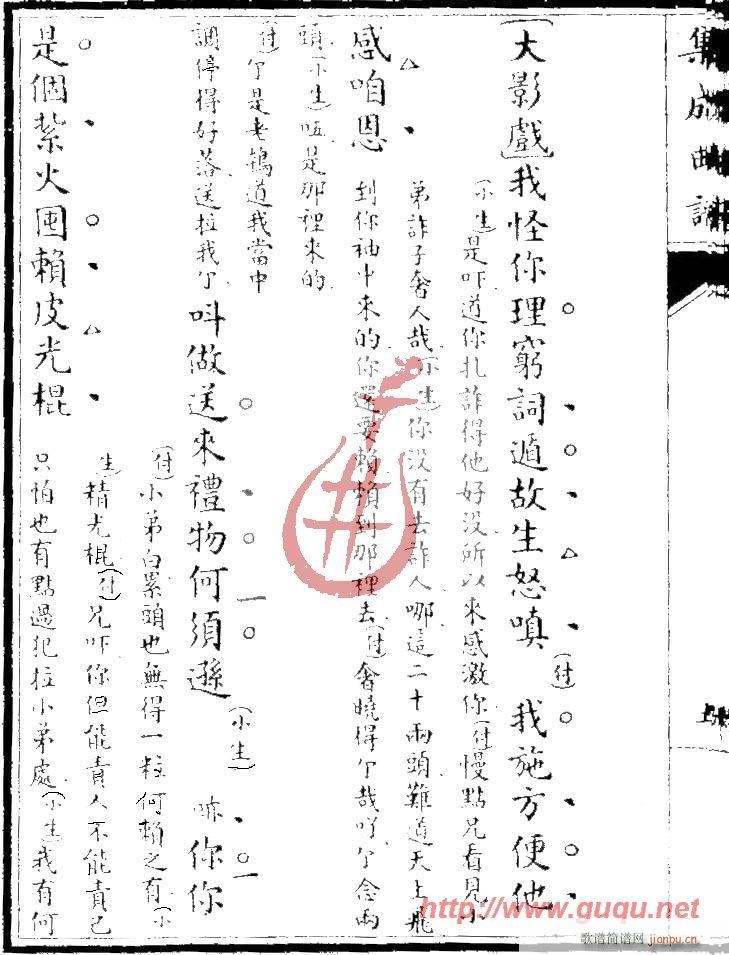 集成曲譜
[大影戲]我怪你理窮詞遁故生怒嗔(付)我施方便他
(小生)是吓道你扎詐得他好沒所以來感激你(付)慢點兄看見小
弟詐子奢人哉(小生)你沒有去詐人哪這二十兩頭難道天上飛
感咱恩到你袖中來的你還要賴賴到那裡去(付)奢曉得个哉吖个念兩
頭(小生)啞是那裡來的
(付)个是老鴇道我當中
調停得好落送拉我个呌做送來禮物何須遜(小生)嘛你你
(付)小弟白累頭也無得一粒何賴之有(小
生)精光棍(付)兄吓你但能責人不能責己
是個紮火囤賴皮光棍只怕也有點過犯拉小弟處(小生)我有何
http://www.guqu.net
歌谱简谱网 jianpu.cn